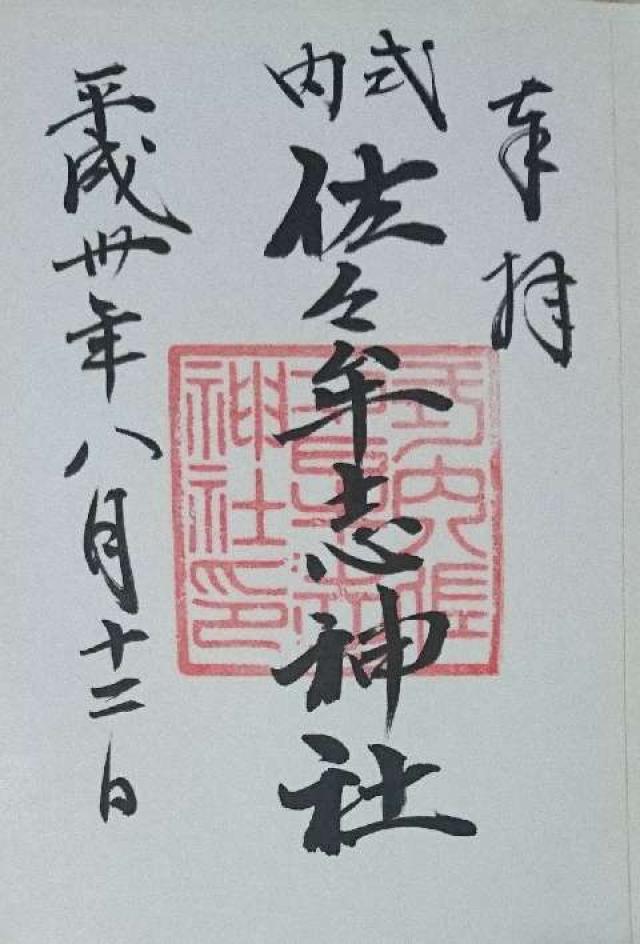 奉拝
式内
佐々牟志神社
平成卅年八月十二日